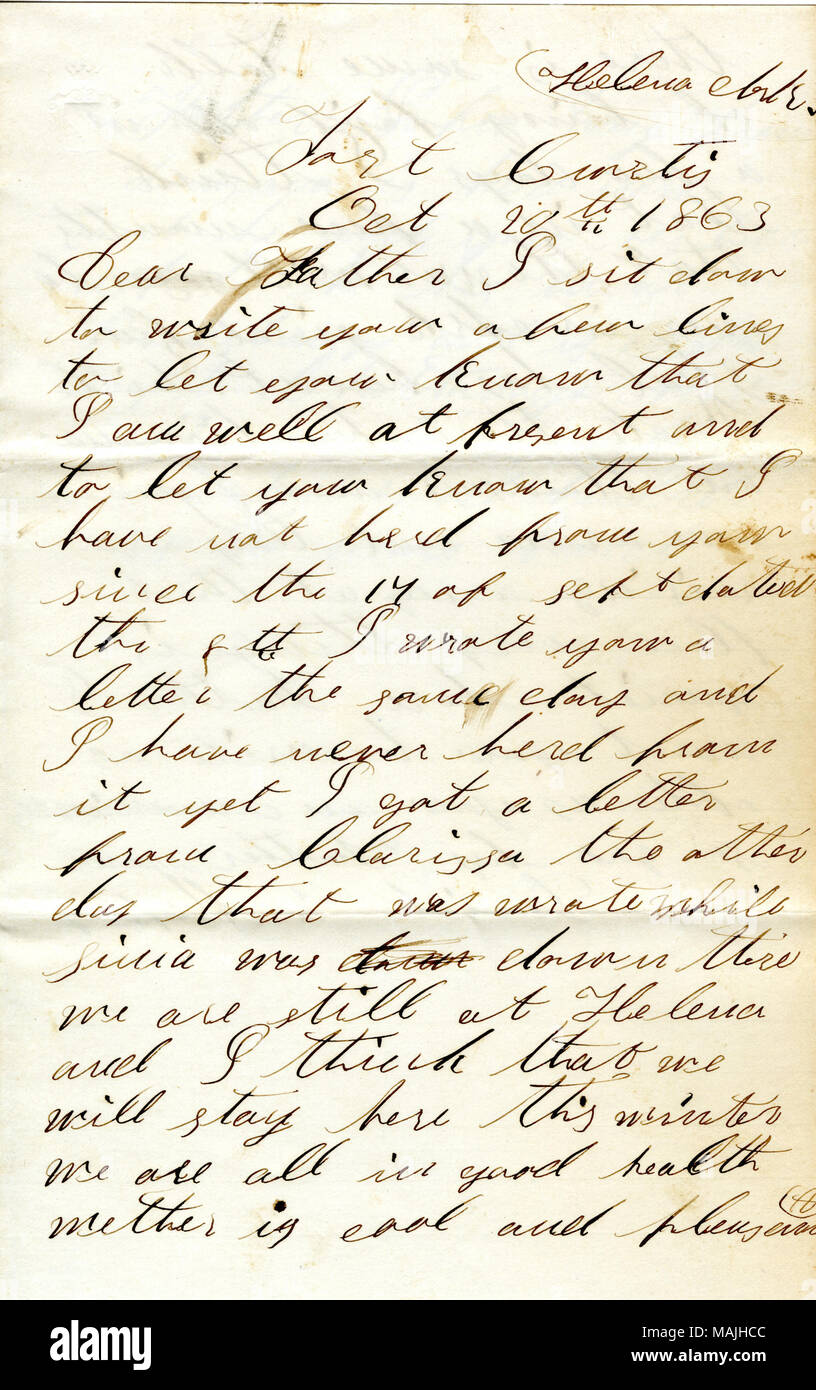 Helena Ark.
Fort Curtis
Oct 20th 1863
Dear Father I sit down
to write yow a hew lines
to let yow know that
I am well at present and
to let yow know that I
have not herd from yow
since the 14 of sept dated
the 8th I wrote yow a
letter the same day and
I have never herd from
it yet I got a letter
from Clarissa the other
day that was wrote while
was down thire
we are still at Helena
and I think that we
will stay here this winter
we are all in good health
wether is cool and pleasan
alamy
Image ID: MAJHCC
www.alamy.com